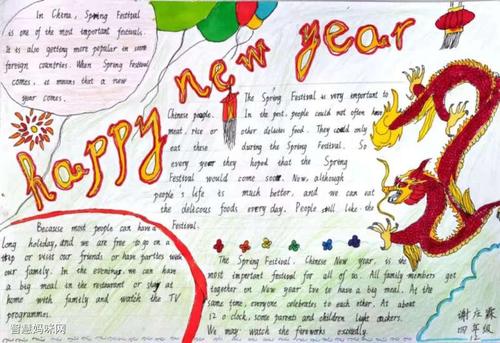 In China, Spring Festival
is one of the most important festivals.
It is also getting more popular in some
foreign countries. When Spring Festival
comes, it means that a new
year comes.
happy new year
The Spring Festival is very important to
Chinese people. In the past, people could not often have
meat, rice or other delicious food. They could only
eat these during the Spring Festival. So
every year they hoped that the Spring
Festival would come soon. Now, although
people's life is much better, and we can eat
the delicous foods every day. People still like the
Festival.
Because most people can have a
long holiday, and we are free to go on a
trip or visit our friends or have parties with
our family. In the evenings we can have
a big meal in the restaurant or stay at
home with family and watch the TV
programmes.
The Spring Festival, Chinese New year, is the
most important festival for all of us. All family members get
together on New year Eve to have a big meal. At the
same time, everyone celebrates to each other. At about
12 o clock, some parents and children light
We may watch the fireworks excitedly.
谢庄霖
四年级
12
智慧妈咪网